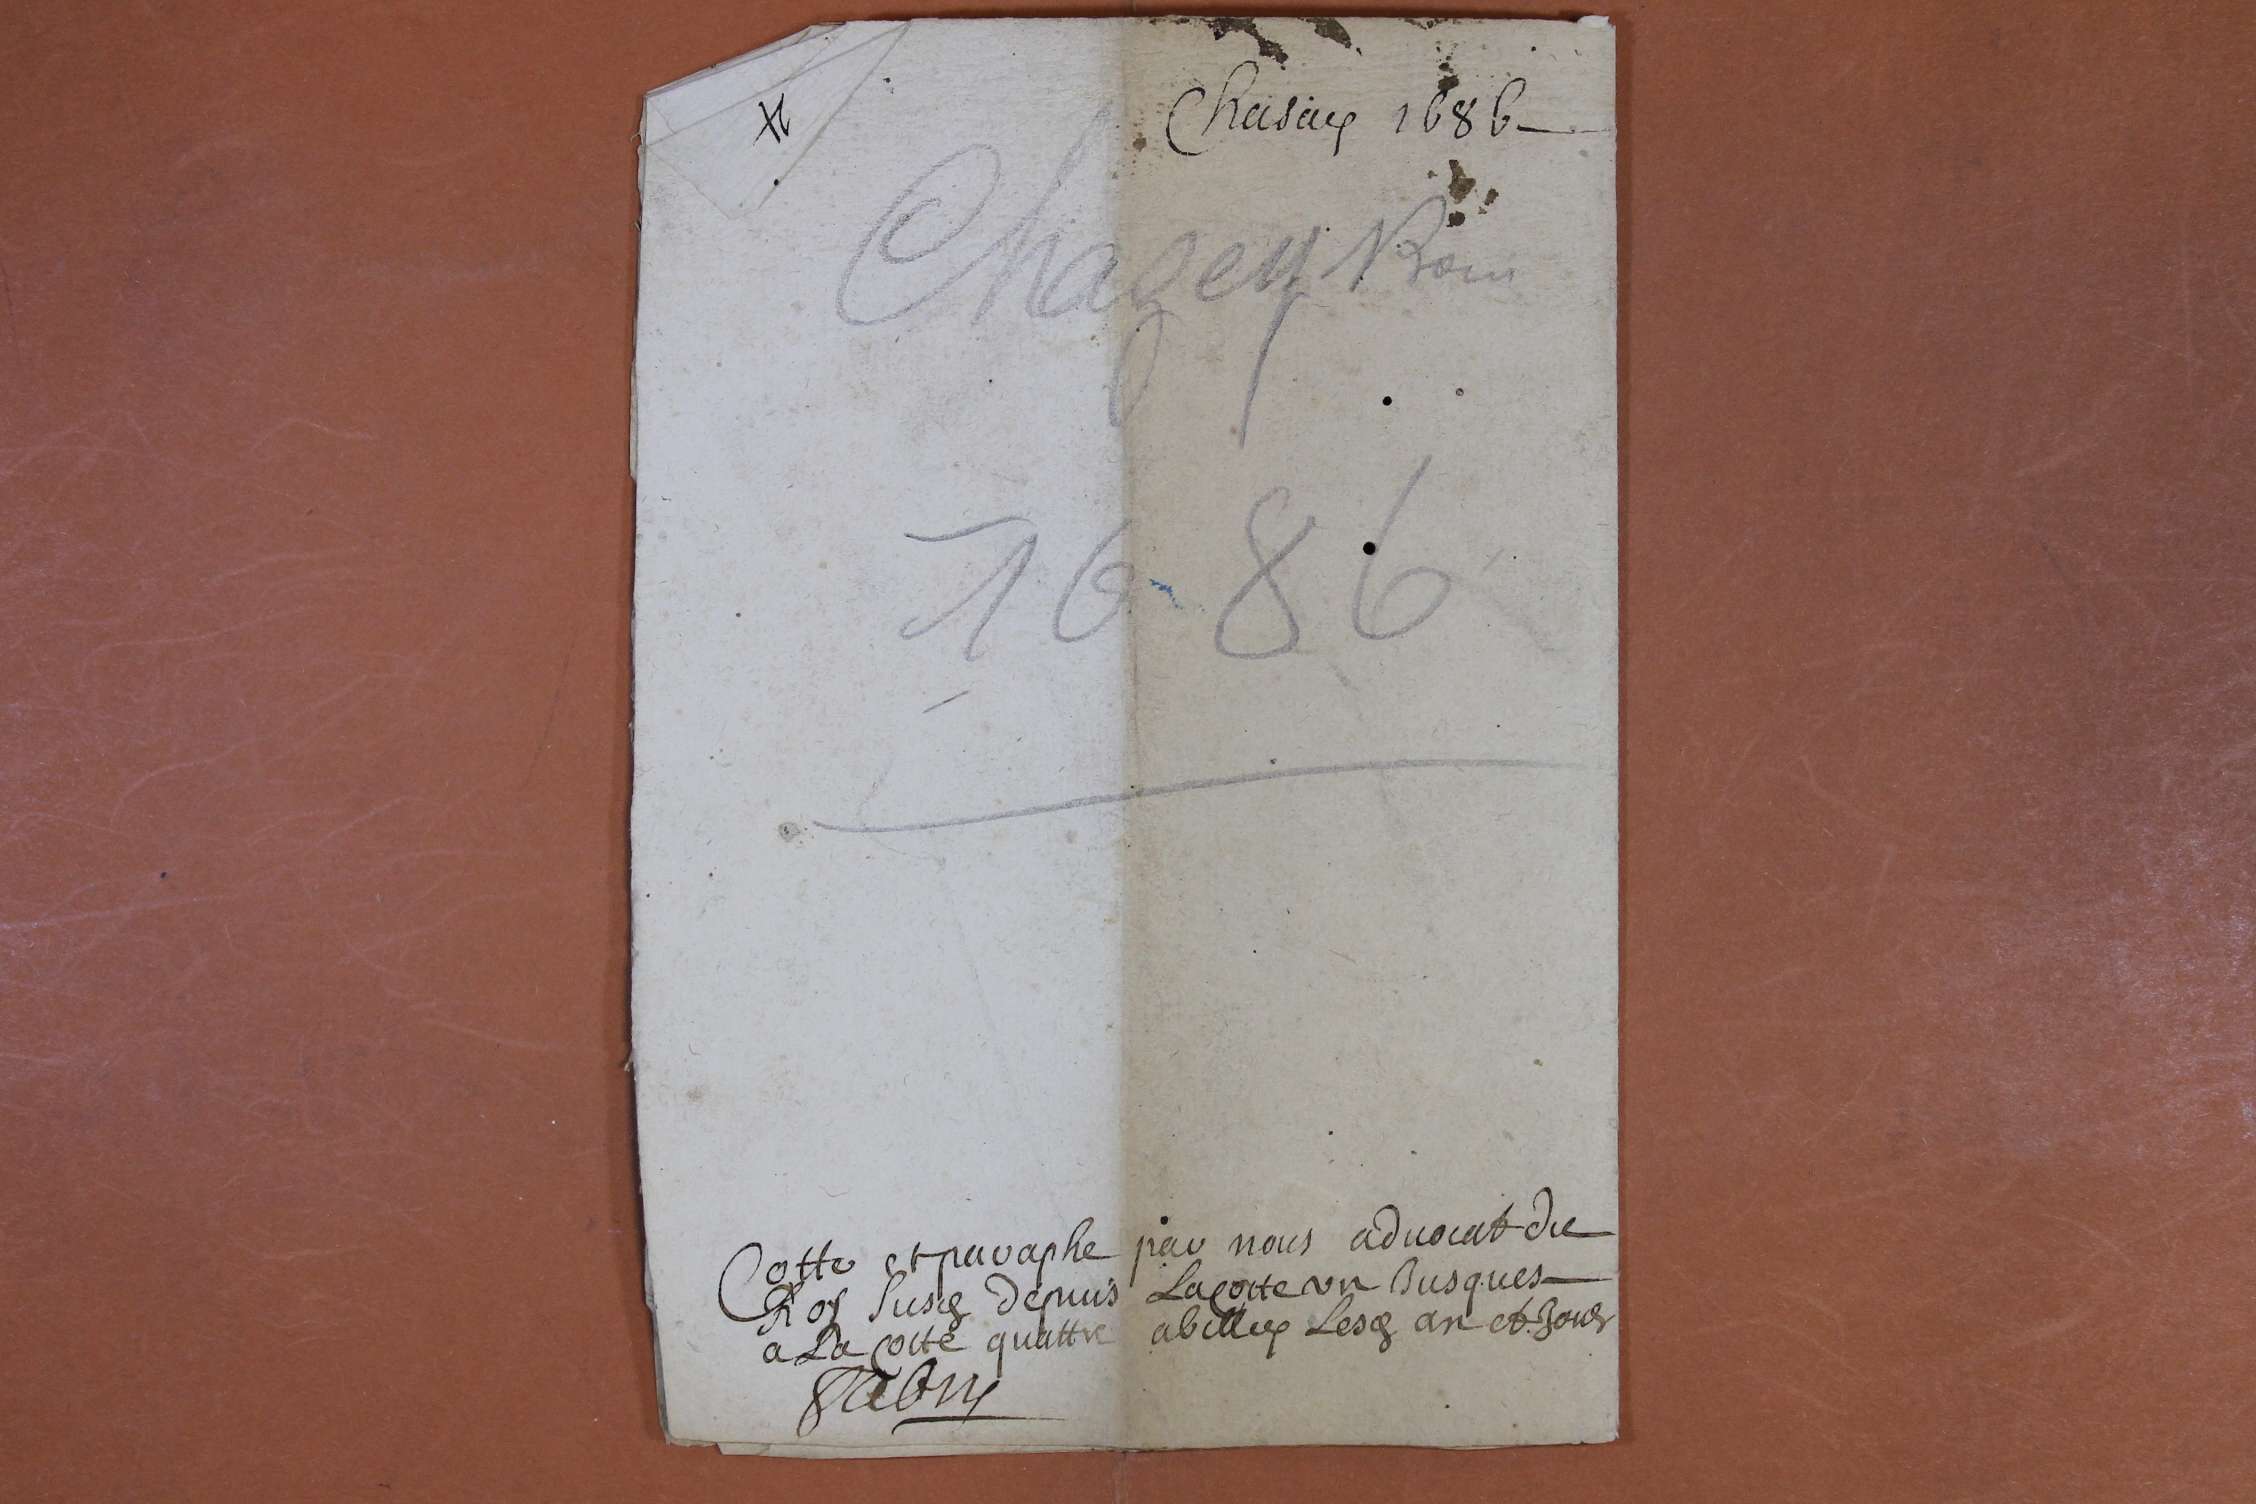 Chasey 1686
Chazey Bons
1686
Cotte et paraphe par nous advocat du
Roy susd depuis la cotte un jusques
a la cotte quattre abelley lesd an et jour
Fabry